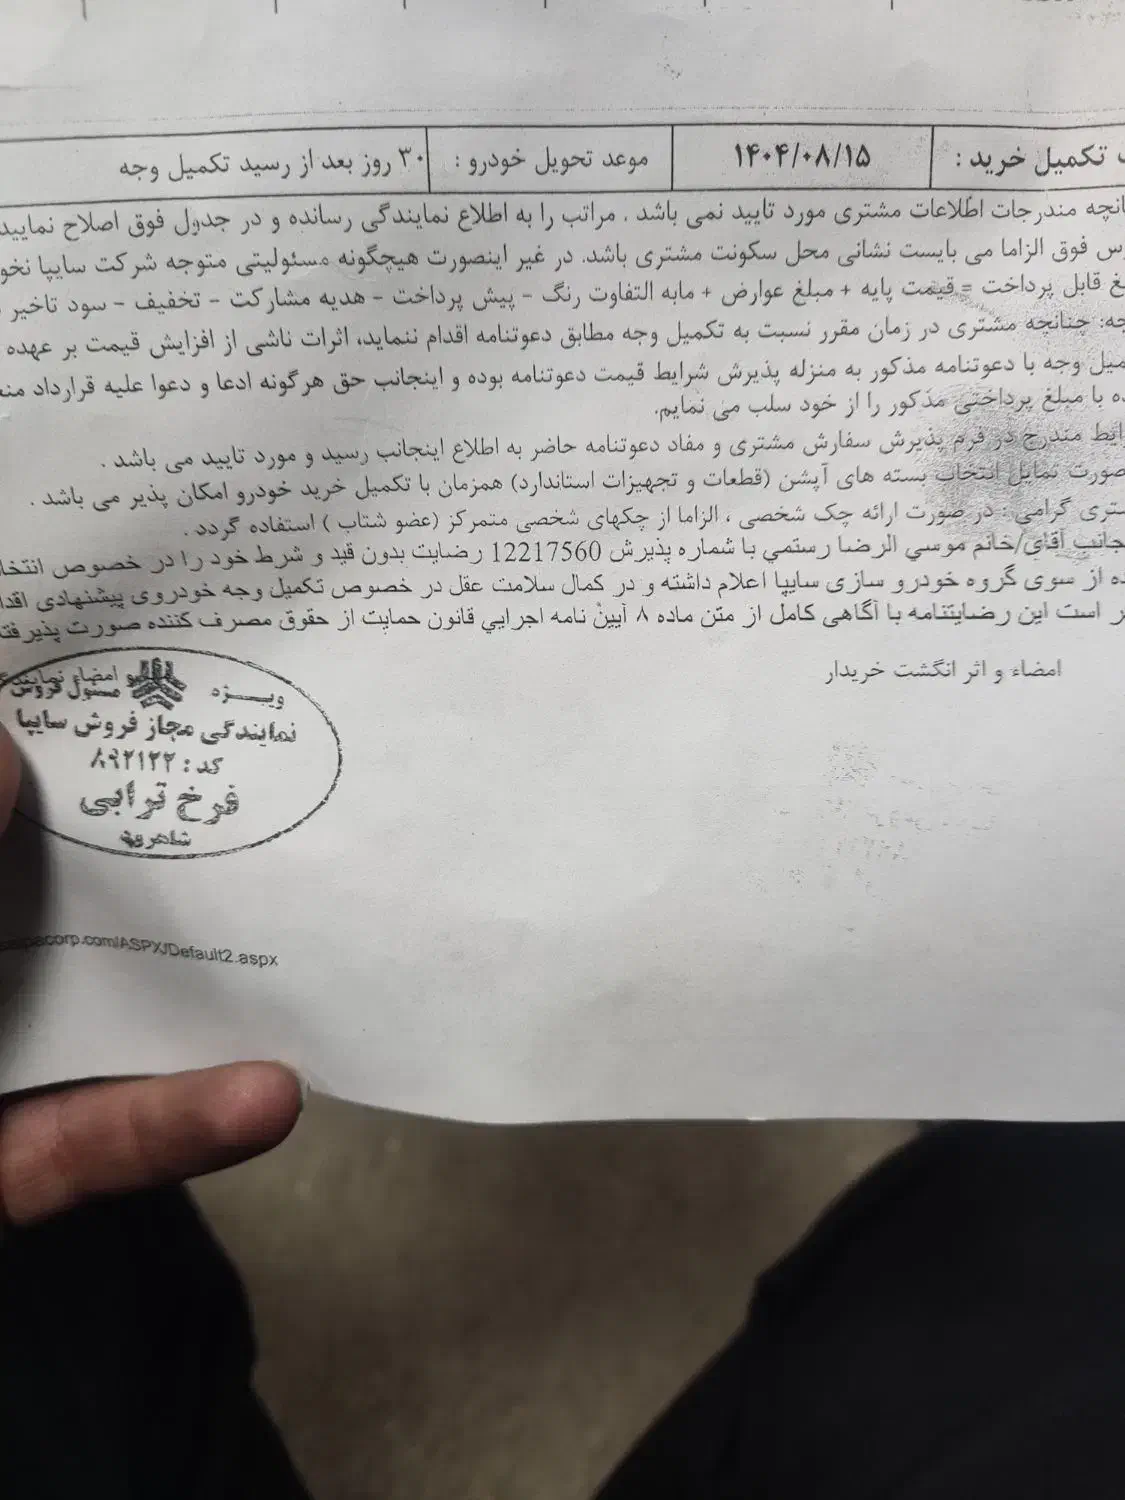 تکمیل خرید : ۱۴۰۴/۰۸/۱۵ موعد تحویل خودرو : ۳۰ روز بعد از رسید تکمیل وجه
مندرجات اطلاعات مشتری مورد تایید نمی باشد ، مراتب را به اطلاع نمایندگی رسانده و در جدول فوق اصلاح نمایید
فوق الزاما می بایست نشانی محل سکونت مشتری باشد. در غیر اینصورت هیچگونه مسئولیتی متوجه شرکت سایپا
قابل پرداخت = قیمت پایه + مبلغ عوارض + مابه التفاوت رنگ - پیش پرداخت - هدیه مشارکت - تخفیف - سود تاخیر
چنانچه مشتری در زمان مقرر نسبت به تکمیل وجه مطابق دعوتنامه اقدام ننماید، اثرات ناشی از افزایش قیمت بر عهده
وجه با دعوتنامه مذکور به منزله پذیرش شرایط قیمت دعوتنامه بوده و اینجانب حق هرگونه ادعا و دعوا علیه قرارداد
با مبلغ پرداختی مذکور را از خود سلب می نمایم.
مندرج در فرم پذیرش سفارش مشتری و مفاد دعوتنامه حاضر به اطلاع اینجانب رسید و مورد تایید می باشد .
صورت تمایل انتخاب بسته های آپشن (قطعات و تجهیزات استاندارد) همزمان با تکمیل خرید خودرو امکان پذیر می باشد .
گرامی : در صورت ارائه چک شخصی ، الزاما از چکهای شخصی متمرکز (عضو شتاب ) استفاده گردد .
آقاي/خانم موسي الرضا رستمي با شماره پذیرش 12217560 رضایت بدون قید و شرط خود را در خصوص
از سوی گروه خودرو سازی سایپا اعلام داشته و در کمال سلامت عقل در خصوص تکمیل وجه خودروی پیشنهادی
است این رضایتنامه با آگاهی کامل از متن ماده ۸ آیین نامه اجرایي قانون حمایت از حقوق مصرف کننده صورت
امضاء و اثر انگشت خریدار
و امضاء
ویـــژه مسئول فروش
نمایندگی مجاز فروش سایپا
کد : ۸۹۲۱۲۲
فرخ ترابی
شاهرود
corp.com/ASPX/Default2.aspx